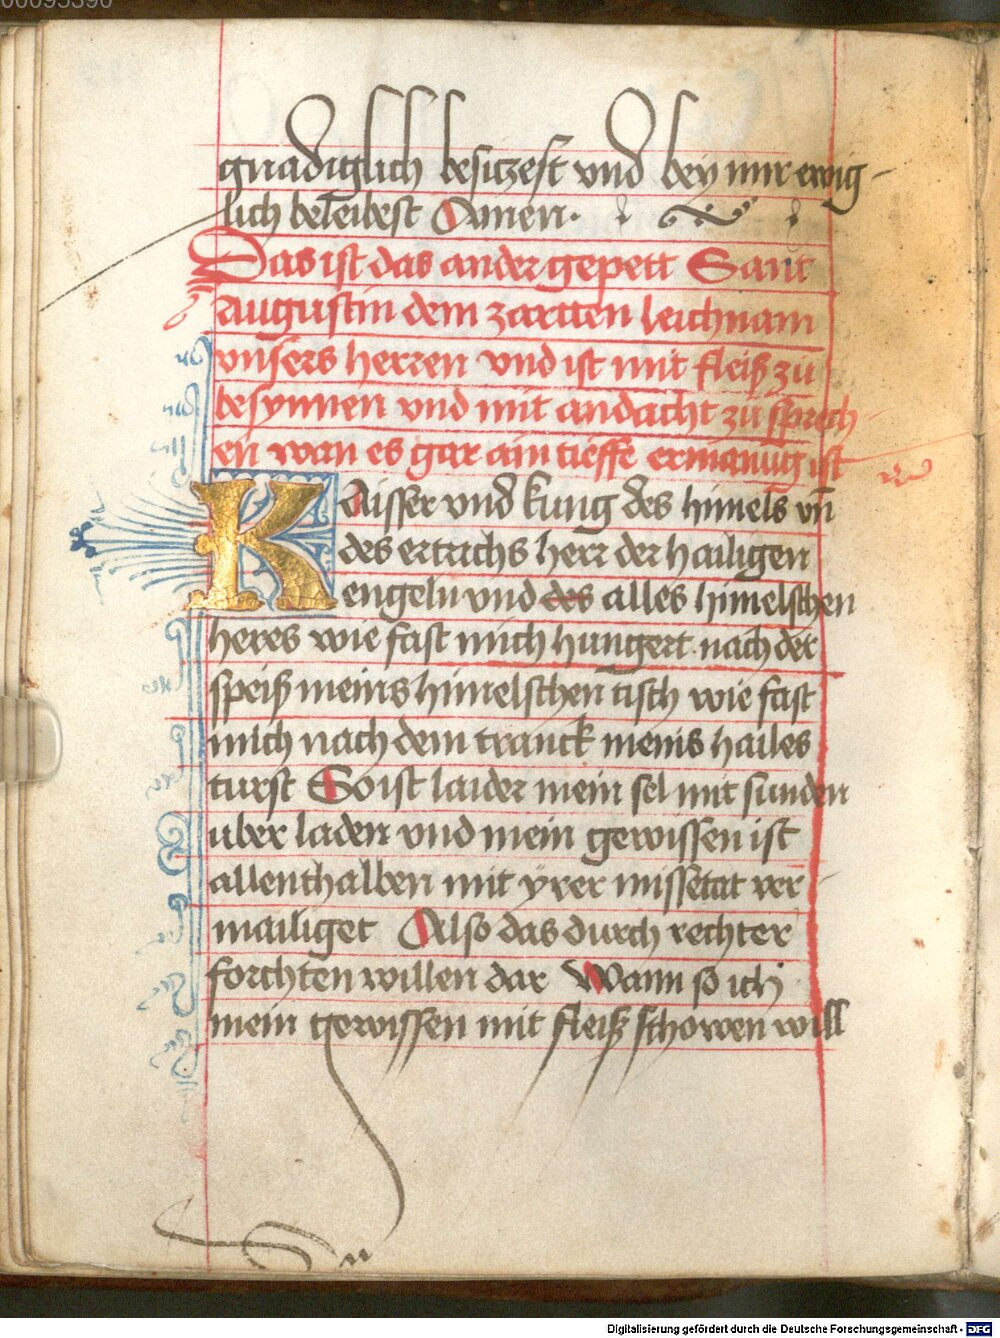 00095390
gnadigklich besitzest vnd bey mir ewig-
lich beleibest Amen.
Das ist das ander gepett Sant
Augustin dem zartten leichnam
vnsers herren vnd ist mit fleiß zů
besynnen vnd mit andacht zů sprech
en wan es gar ain tieffe ermanūg ist
Kaisser vnd kung des himels vn̄
des ertrichs herr der hailigen
engeln vnd des alles himelschen
heres wie fast mich hungert nach der
speiß meins himelschen tisch wie fast
mich nach dem tranck meins hailes
turst So ist laider mein sel mit sunden
uber laden vnd mein gewissen ist
allenthalben mit yrer missetat ver
mailiget Also das durch rechter
forchten willen dar Wann so ich
mein gewissen mit fleiß schowen will
Digitalisierung gefördert durch die Deutsche Forschungsgemeinschaft - DFG